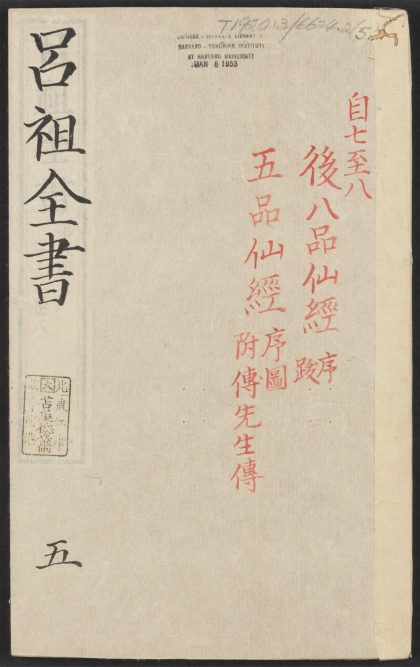 T1920.13/6624.2(5)
CHINESE - JAPANESE LIBRARY
HARVARD - YENCHING INSTITUTE
AT HARVARD UNIVERSITY
JAN 8 1953
自七至八
後八品仙經 序跋
五品仙經 序圖
附傳先生傳
呂祖全書
五